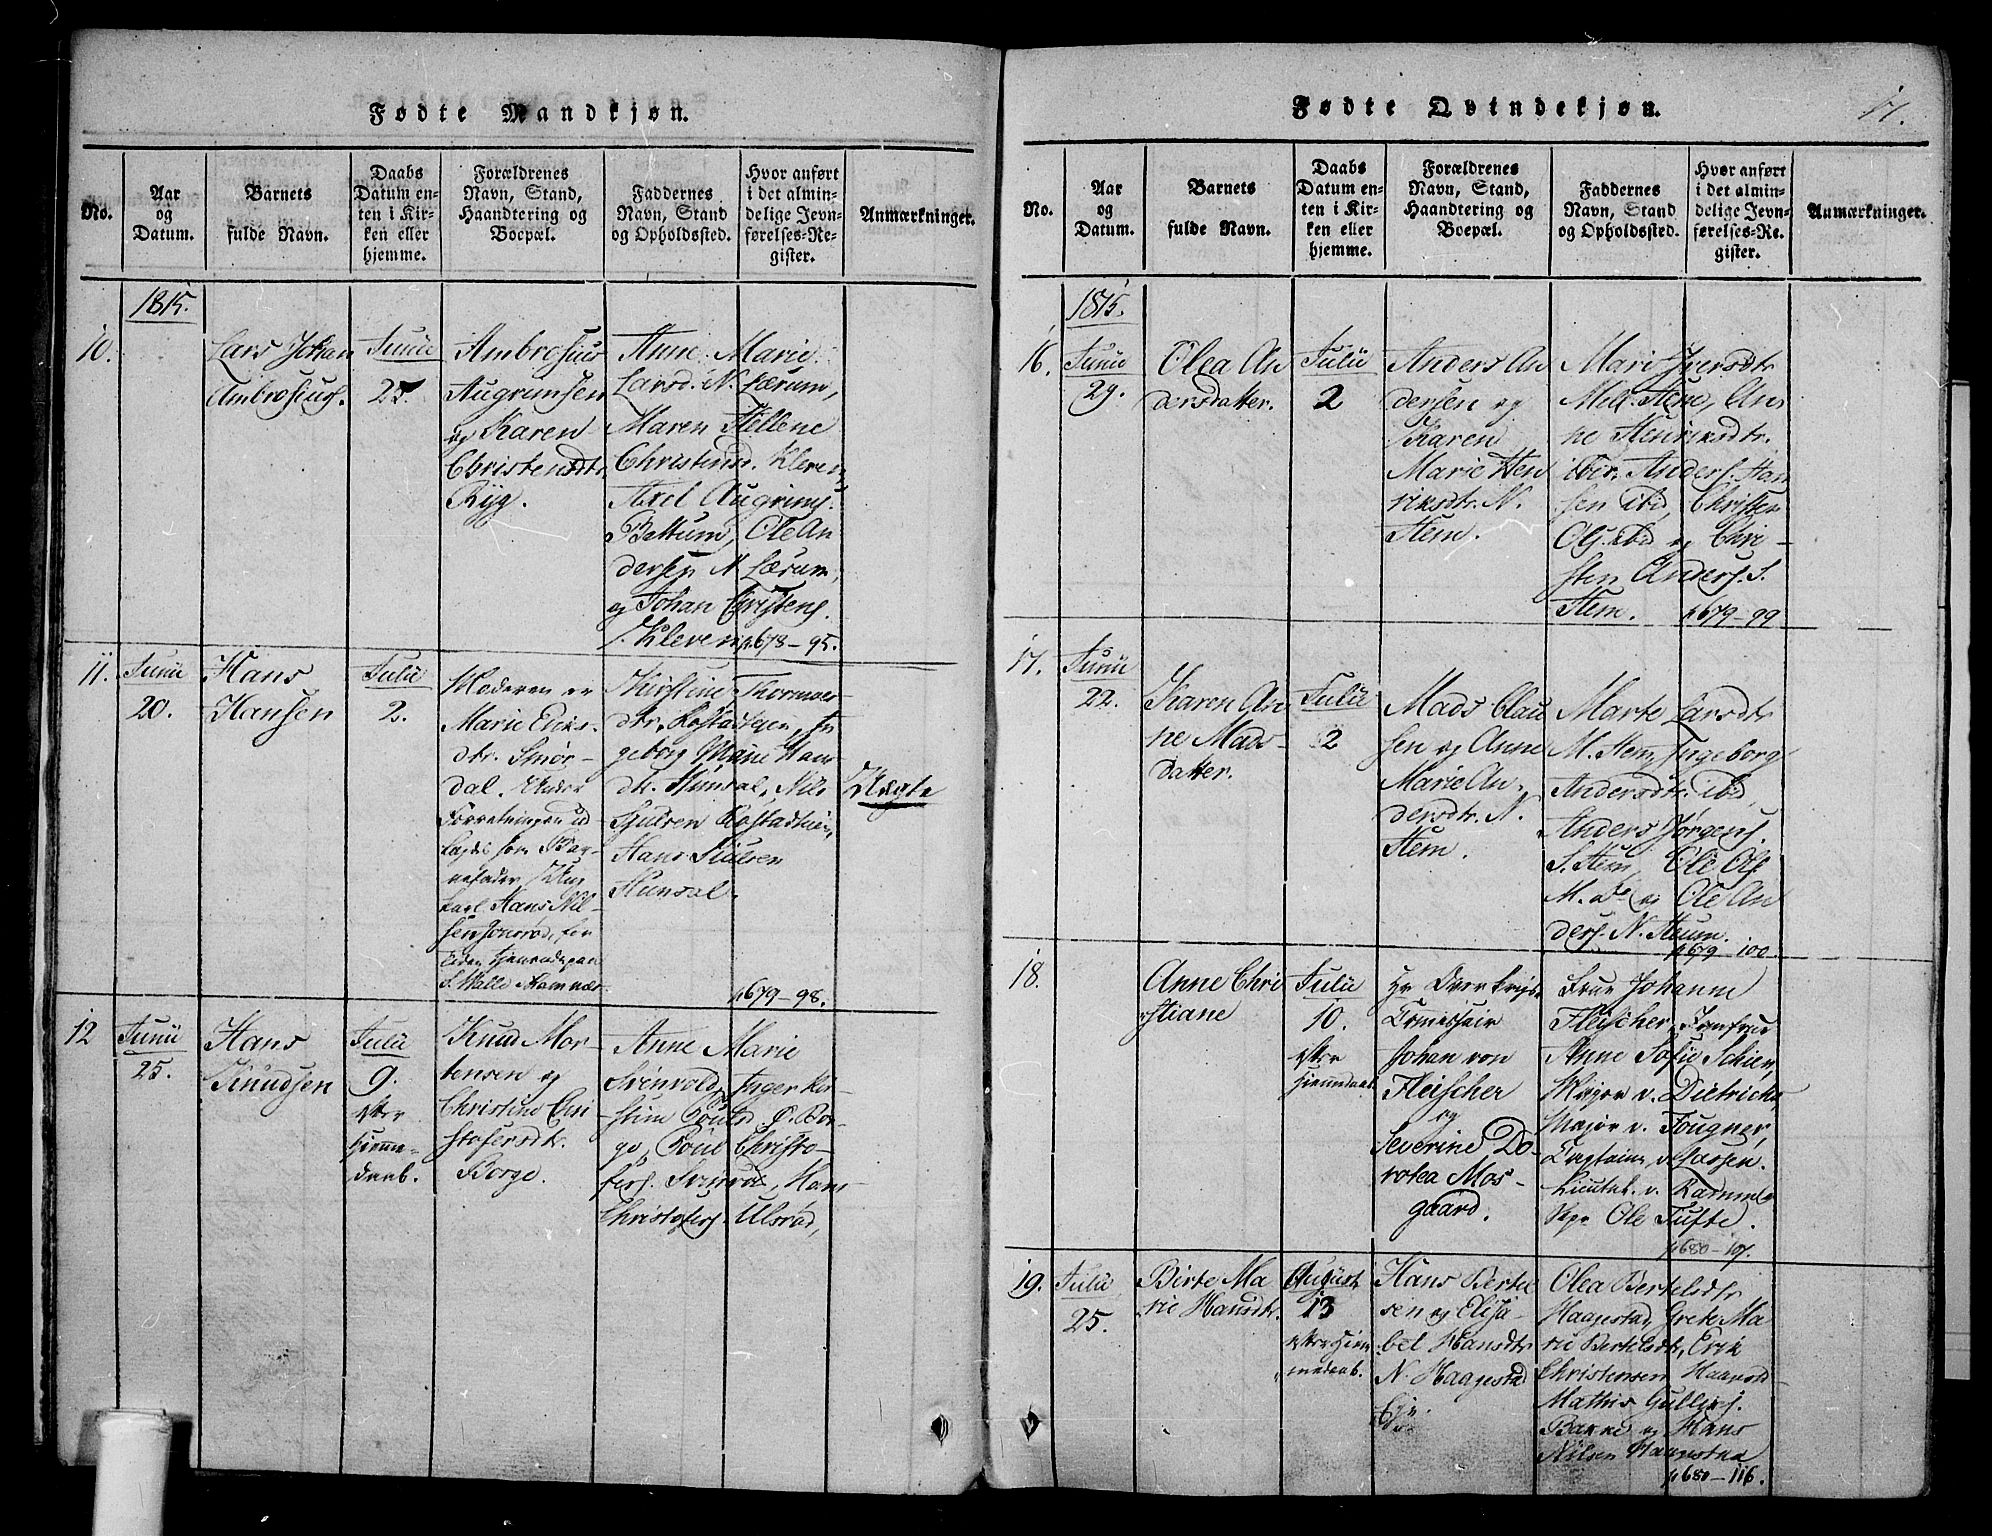 Fødte Mandkjøn.
No.
Aar
og
Datum.
Barnets
fulde Navn.
Daabs
Datum en-
ten i Kir-
ken eller
hjemme.
Forældrenes
Navn, Stand,
Haandtering og
Boepæl.
Faddernes
Navn, Stand
og Opholdssted.
Hvor anført
i det almin-
delige Jevn-
førelses-Re-
gister.
Anmærkninger.
1815.
10.
Lars Johan
Ambrosius.
Junii
25
Ambrosius
Augrimsen
og Karen
Christensdtr.
Ryg.
Anne Marie
Larsd. N. Lærum,
Maren Hellene
Christind. Kleven,
Axel Augrims.
Bettum, Ole An
dersen N Lærum,
og Johan Christens.
Kleven
678-95.
11.
Junii
20.
Hans
Hansen
Julii
2.
Moderen er
Marie Eriks-
dtr. Smør-
dal.
Hans Nil-
sen
S. Walle
Kirstine
dtr.
geborg Marie Han
dtr. Hunsal, Nils
Hans
Hunsal.
Uægte
679-98.
12
Junii
25.
Hans
Knudsen
Julii
9.
hjemme-
daab.
Knud Mor-
tensen og
Christine Chri
stofersdtr.
Borge.
Anne Marie
Inger Kir-
stine
ge, Poul Christo-
fers. Hans
Christofers. Ulsrød,
Fødte Qvindekjøn.
17.
No.
Aar
og
Datum.
Barnets
fulde Navn.
Daabs
Datum en-
ten i Kir-
ken eller
hjemme.
Forældrenes
Navn, Stand,
Haandtering og
Boepæl.
Faddernes
Navn, Stand
og Opholdssted.
Hvor anført
i det almin-
delige Jevn-
førelses-Re-
gister.
Anmærkninger.
1815.
16.
Junii
29.
Olea An
dersdatter.
Julii
2
Anders An
dersen og
Karen
Marie Hen
riksdtr. N.
Hem.
Mari Iversdtr
Mel. Hem, An
ne Henriksdtr.
ibid. Anders Han
sen ibid, Christen
Ols. ibid og Chri-
sten Anders. S.
Hem.
679-99
17.
Junii
22.
Karen An
ne Mads-
datter.
Julii
2
Mads Clau
sen og Anne
Marie An-
dersdtr. N.
Hem.
Marte Larsdtr
M. Hem, Ingeborg
Andersdtr. ibid,
Anders Jørgens.
S. Hem, Ole Ols.
M. do og Ole An
ders. N. Hem.
679-100.
18.
Anne Chri
stiane
Julii
10.
efter
hjemmedaab.
Hr Over Krigs-
Johan von
Fleischer
og
Severine Do-
rotea Mos-
gaard.
Frue Johanne
Fleischer, Jomfrue
Anne Sofie
Major v.
Major v. Fougner,
Captaine
Lieutnt. v.
Ole Tufte.
680-107.
19.
Julii
25.
Birte Ma
rie Hansdtr.
August
13
efter hjem
medaab.
Hans Bertel
sen og Elisa-
bet Hansdtr
N. Haagestad
Eje.
Olea Bertelsdtr
Haagestad, Grete Ma
rie Bertelsdtr, Erik
Christensen
Mathis Gullirs.
Bakke og Hans
Nilsen Haagestad
680-116.